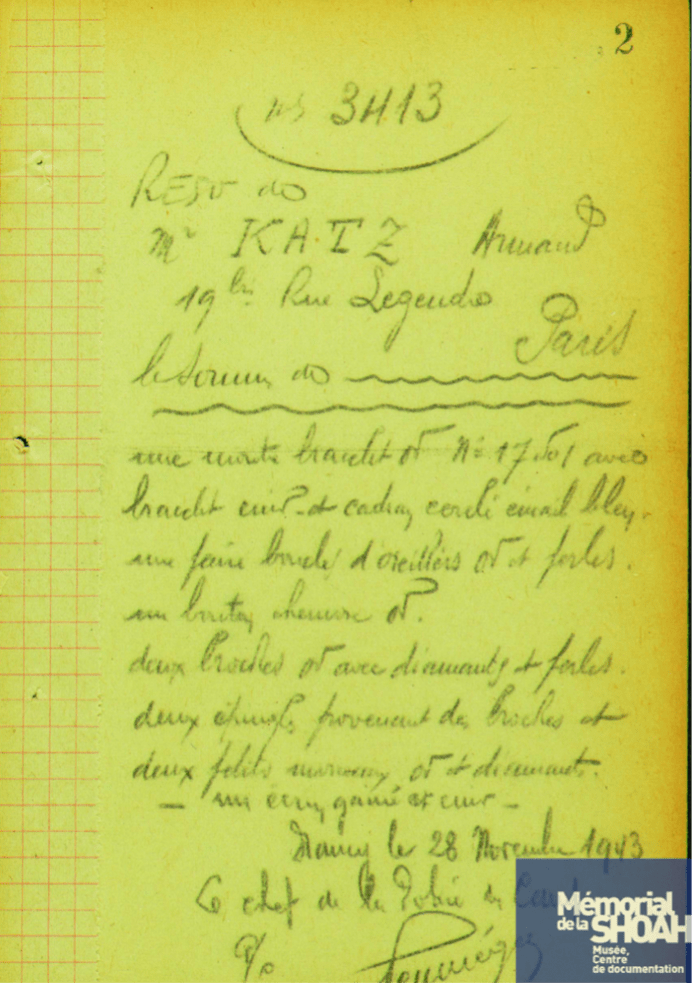 2
N° 3413
Reçu de
Mr KATZ Armand
19 bis Rue Legendre
Paris
la somme de
une montre bracelet or N° 17.501 avec
bracelet cuir et cadran cerclé émail bleu.
une paire boucles d'oreilles or et perles.
un bouton chemise or.
deux broches or avec diamants et perles.
deux épingles provenant des broches et
deux petits morceaux or et diamants.
— un écrin gainé cuir —
le 28 Novembre 1943
Le chef de la Police du
P/o
Mémorial
de la SHOAH
Musée,
Centre
de documentation